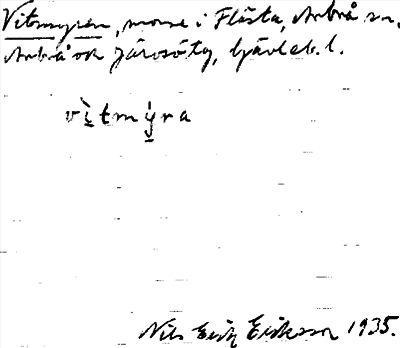 Vitmyran, mosse i Flästa, Arbrå sn,
Arbrå och Järvsö tg, Gävleb. l.
vìtmy̖ra
Nils Erik Eriksson 1935.